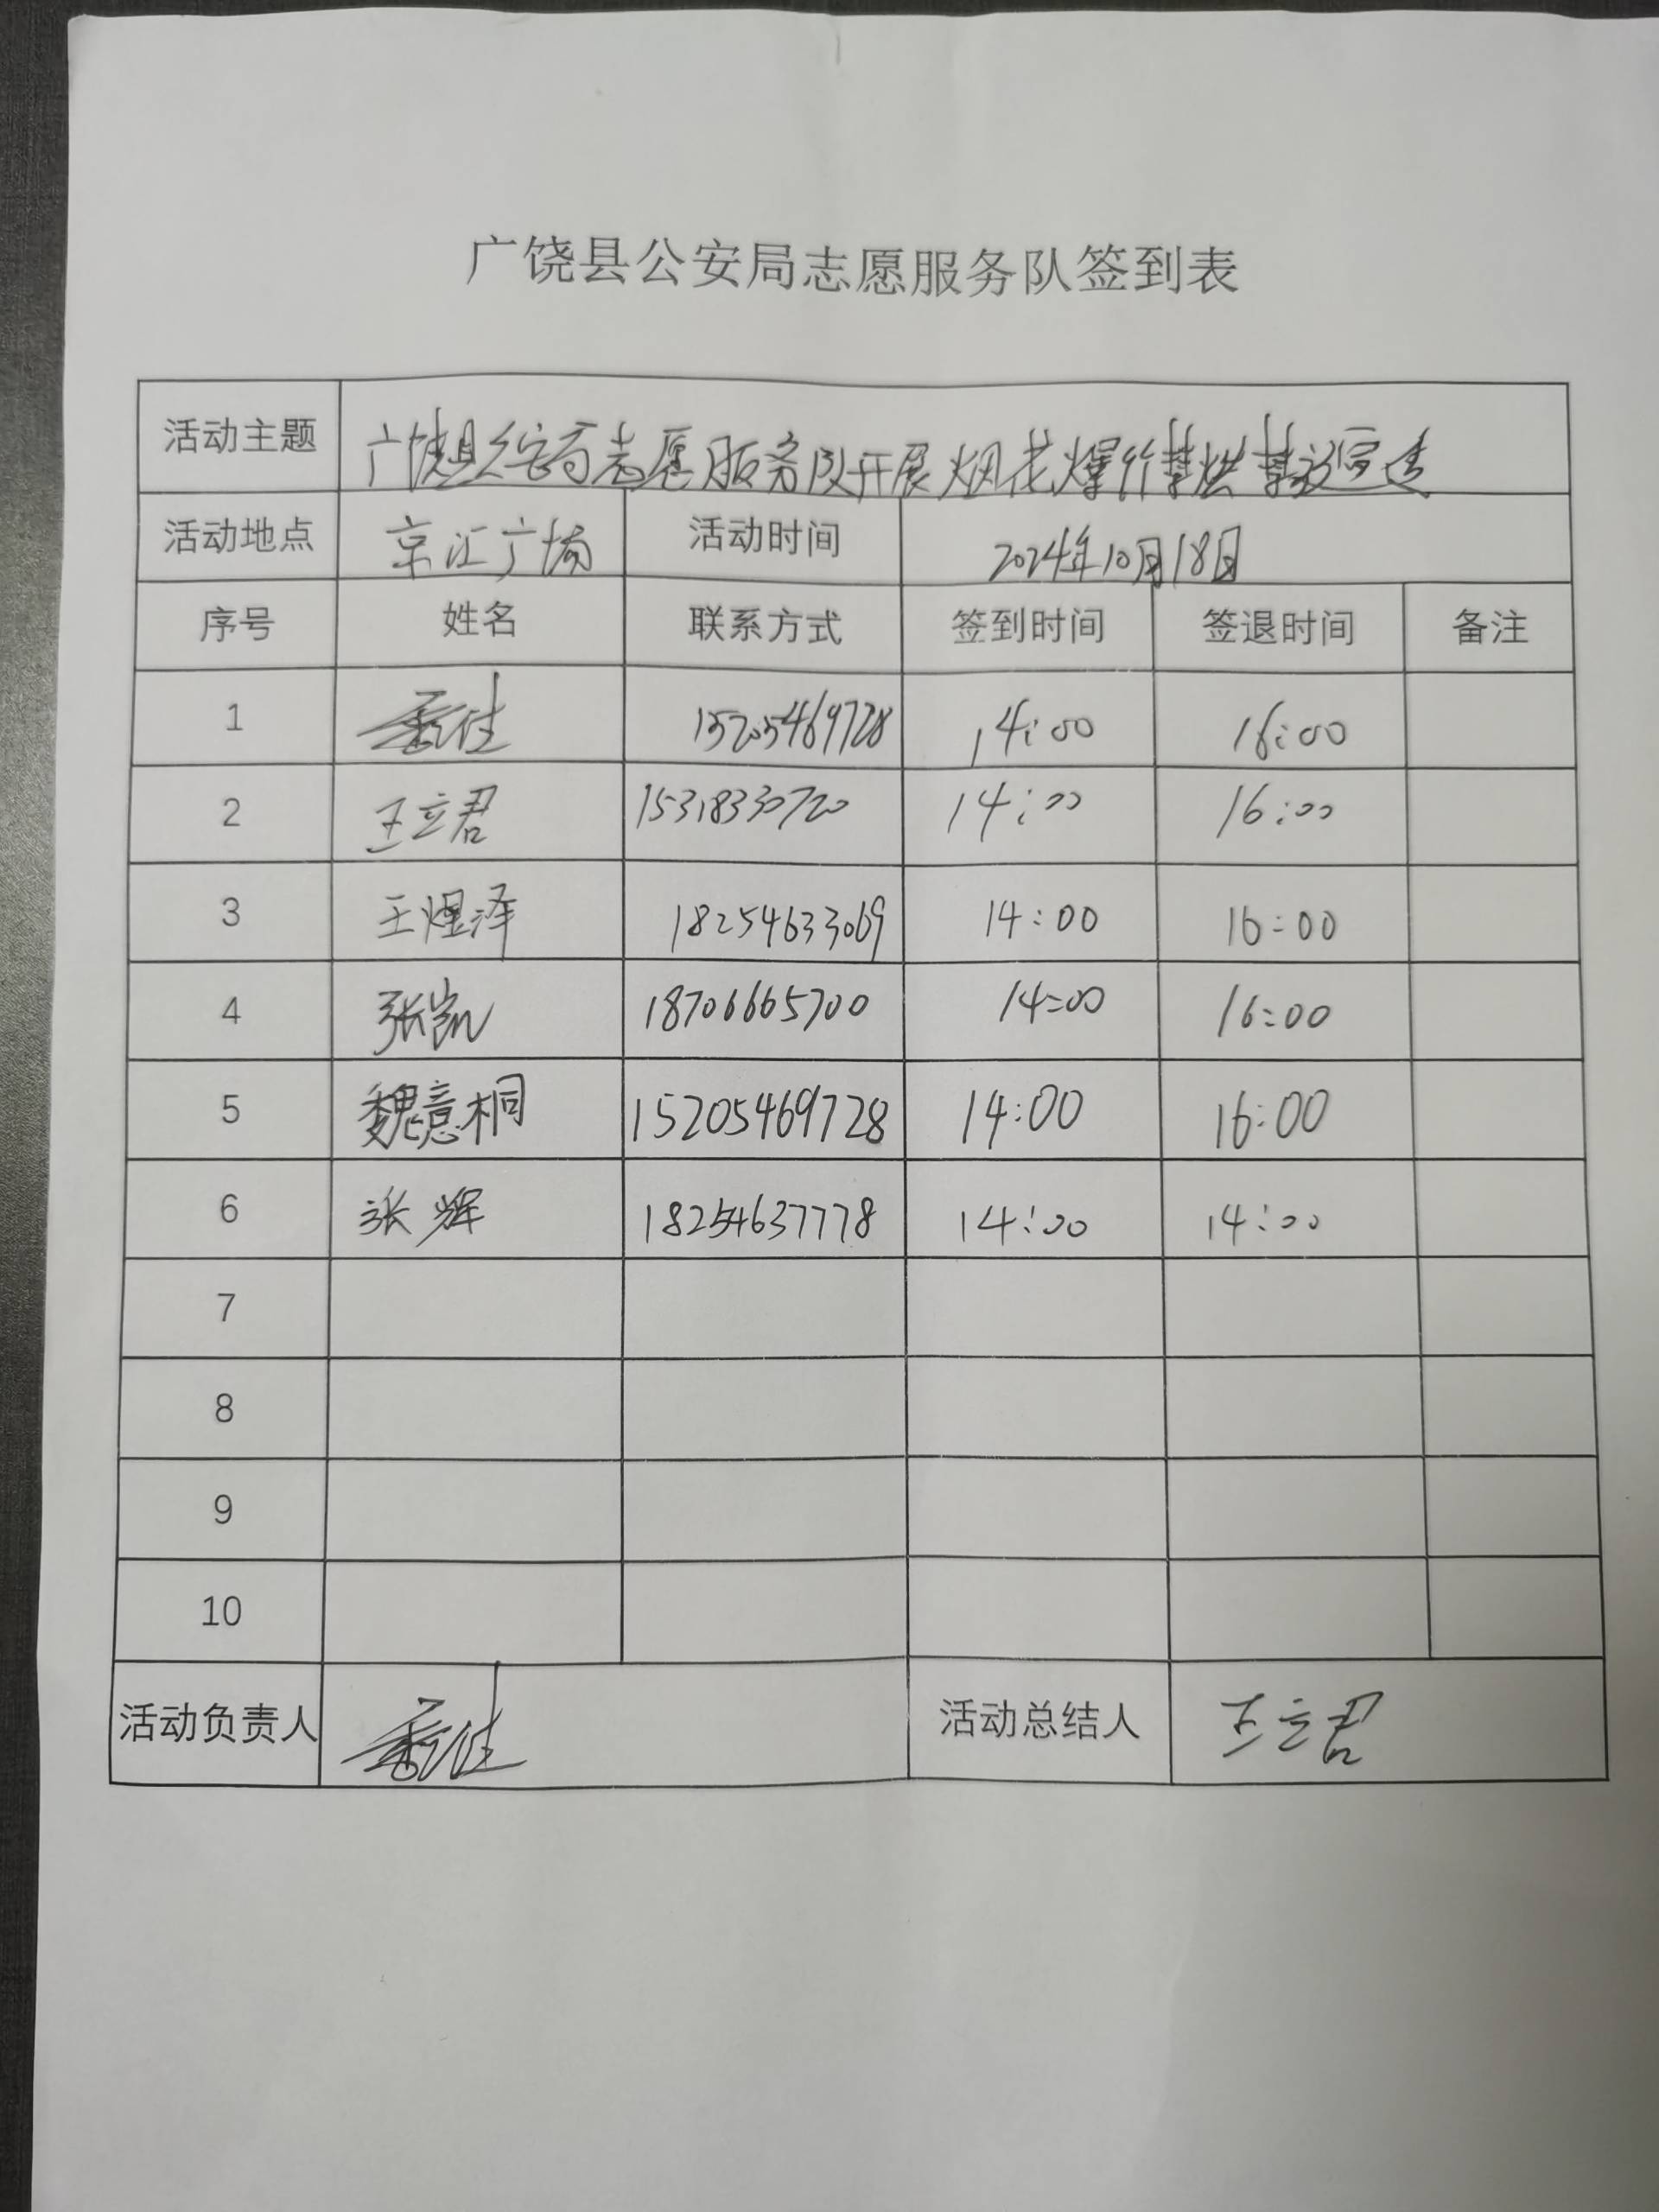 广饶县公安局志愿服务队签到表
活动主题 广饶县公安局志愿服务队开展烟花爆竹禁燃禁放宣传
活动地点 京汇广场 活动时间 2024年10月18日
序号 姓名 联系方式 签到时间 签退时间 备注
1 15205469728 14:00 16:00
2 王立君 15318330720 14:00 16:00
3 王煜泽 18254633069 14:00 16:00
4 张凯 18706665700 14:00 16:00
5 魏意桐 15205469728 14:00 16:00
6 张辉 18254637778 14:00 14:00
7
8
9
10
活动负责人 活动总结人 王立君